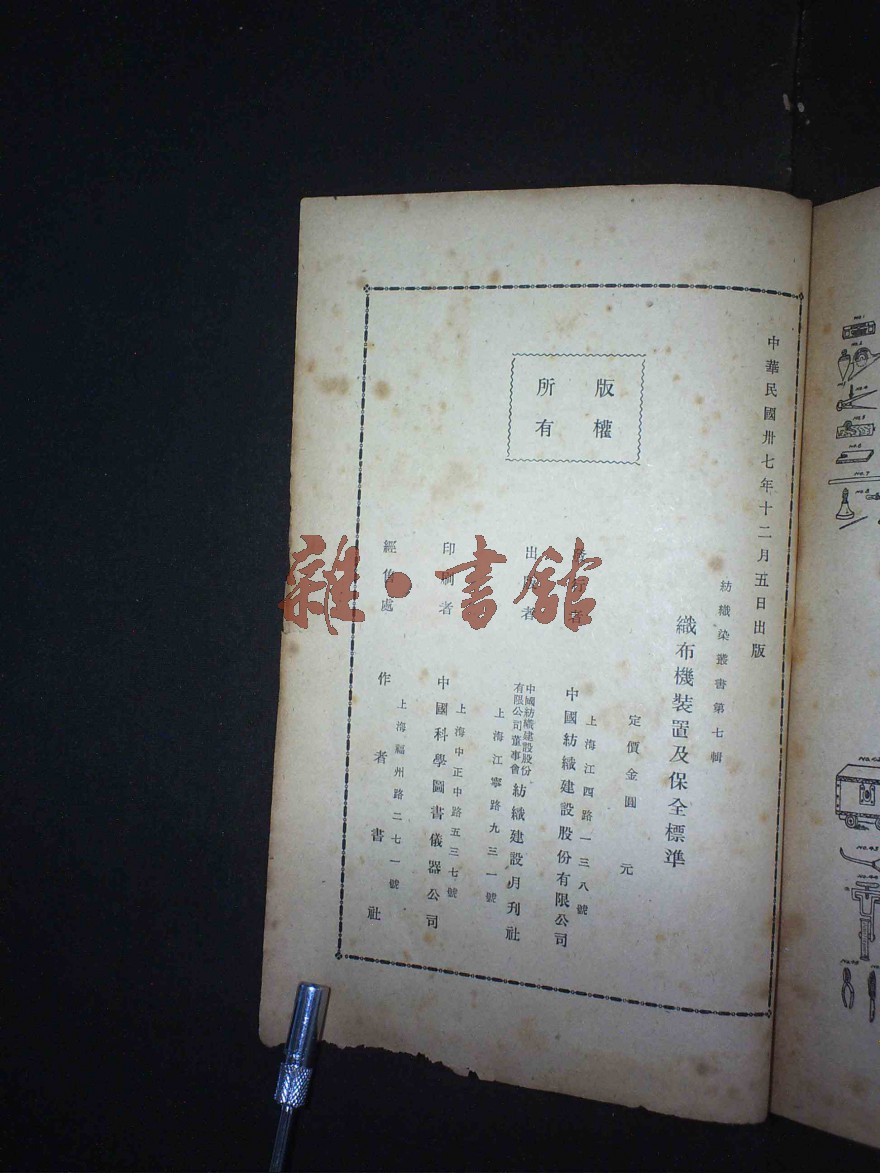 中華民國卅七年十二月五日出版
紡織染叢書第七輯
織布機裝置及保全標準
定價金圓 元
版權所有
發行者
上海江西路一三八號
中國紡織建設股份有限公司
出版者
中國紡織建設股份有限公司董事會 紡織建設月刊社
上海江寧路九三一號
印刷者
上海中正中路五三七號
中國科學圖書儀器公司
經售處
上海福州路二七一號
作者書社
雜·書館
NO.1
NO.7
NO.43